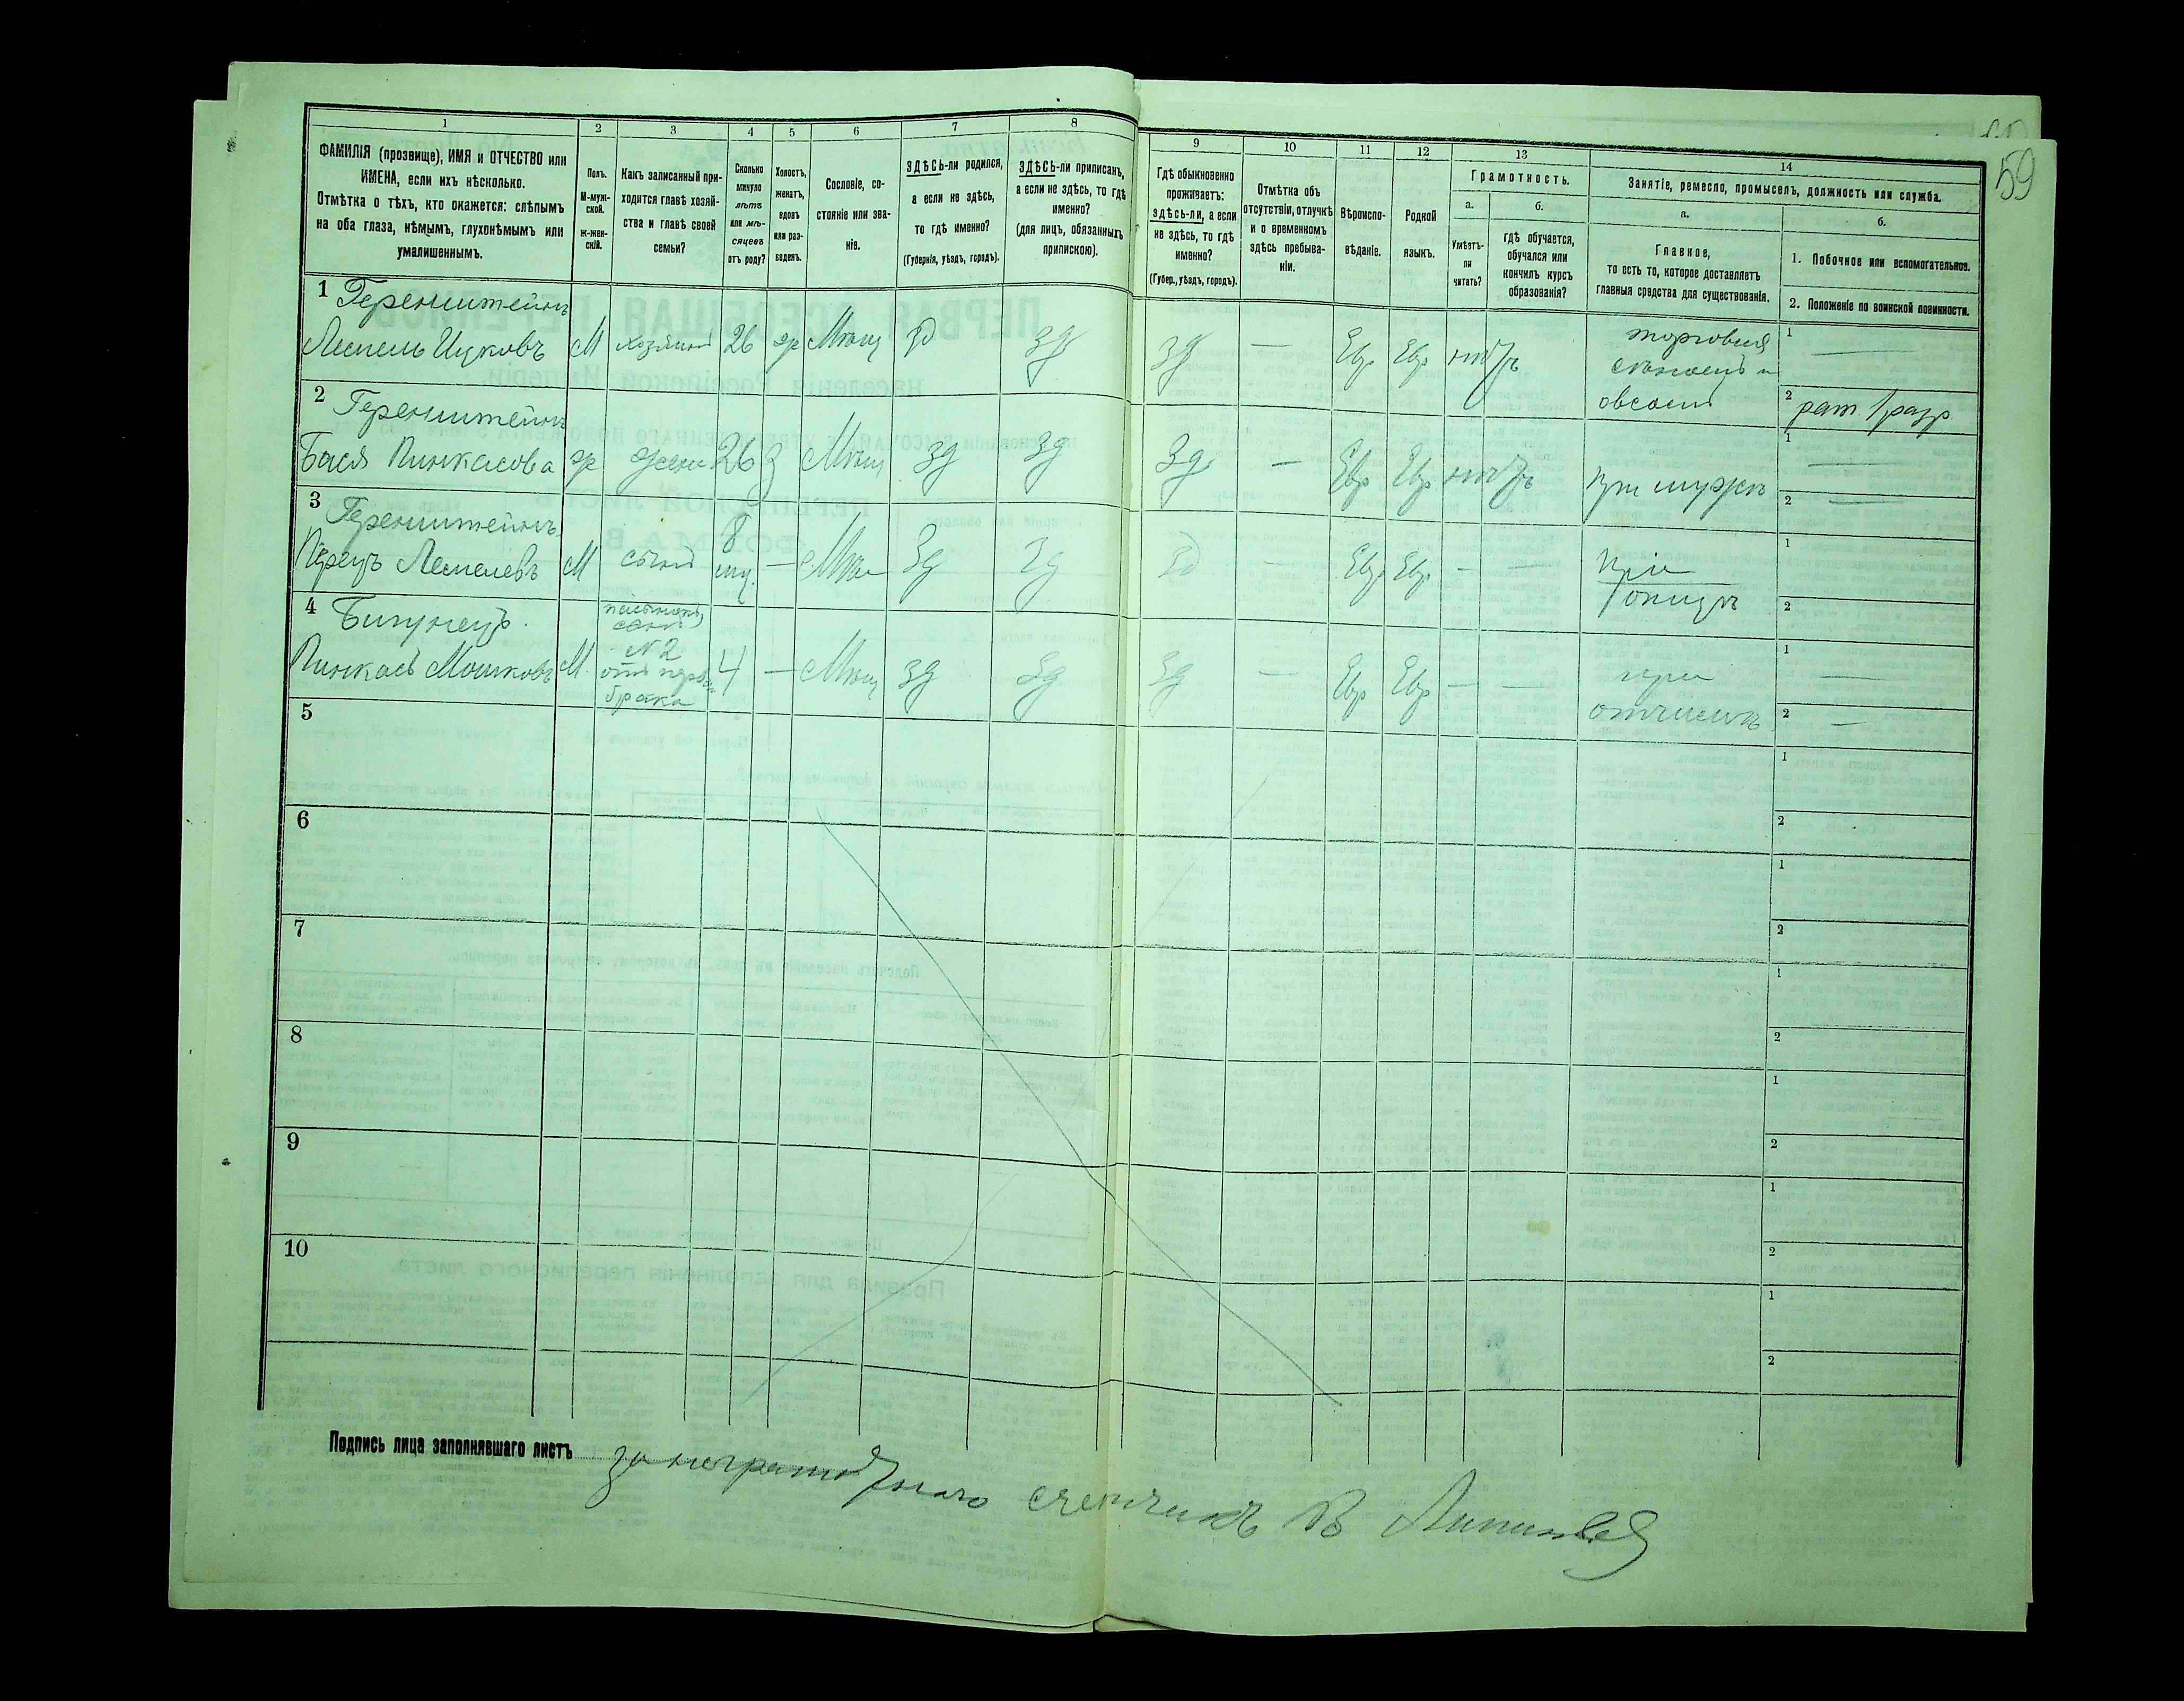 59
1
2
3
4
5
6
7
8
9
10
11
12
13
14
ФАМИЛІЯ (прозвище), ИМЯ и ОТЧЕСТВО или
ИМЕНА, если ихъ нѣсколько.
Отмѣтка о тѣхъ, кто окажется: слѣпымъ
на оба глаза, нѣмымъ, глухонѣмымъ или
умалишеннымъ.
Полъ.
М-муж-
ской.
Ж-жен-
скій.
Какъ записанный при-
ходится главѣ хозяй-
ства и главѣ своей
семьи?
Сколько
минуло
лѣтъ
или мѣ-
сяцевъ
отъ роду?
Холостъ,
женатъ,
вдовъ
или раз-
веденъ.
Сословіе, со-
стояніе или зва-
ніе.
ЗДѢСЬ-ли родился,
а если не здѣсь,
то гдѣ именно?
(Губернія, уѣздъ, городъ).
ЗДѢСЬ-ли приписанъ,
а если не здѣсь, то гдѣ
именно?
(для лицъ, обязанныхъ
припискою).
Гдѣ обыкновенно
проживаетъ:
здѣсь-ли, а если
не здѣсь, то гдѣ
именно?
(Губер., уѣздъ, городъ).
Отмѣтка объ
отсутствіи, отлучкѣ
и о временномъ
здѣсь пребыва-
ніи.
Вѣроиспо-
вѣданіе.
Родной
языкъ.
Грамотность.
а.
Умѣетъ-
ли
читать?
б.
гдѣ обучается,
обучался или
кончилъ курсъ
образованія?
Занятіе, ремесло, промыселъ, должность или служба.
а.
Главное,
то есть то, которое доставляетъ
главныя средства для существованія.
б.
1. Побочное или вспомогательное.
2. Положеніе по воинской повинности.
1 Геренштейнъ
Лемель Ицковъ М хозяинъ 26 ж Мѣщ зд зд зд — Евр Евр нѣтъ
торговля
сѣномъ и
овсомъ
1 —
2 рат 1 разр
2 Геренштейнъ
Бася Пинкасова ж жена 26 з Мѣщ зд зд зд — Евр Евр нѣтъ при мужѣ
1 —
2 —
3 Геренштейнъ
Перецъ Лемелевъ М сынъ 8 — Мѣщ зд зд зд — Евр Евр — —
при
отцѣ
1
2
4
Пинкасъ Мошковъ М. №2 4 — Мѣщ зд зд зд — Евр Евр — —
брака
при
отчимѣ
1 —
2 —
5
1
2
6
1
2
7
1
2
8
1
2
9
1
2
10
1
2
Подпись лица заполнявшаго листъ за неграмотнаго счетчикъ В